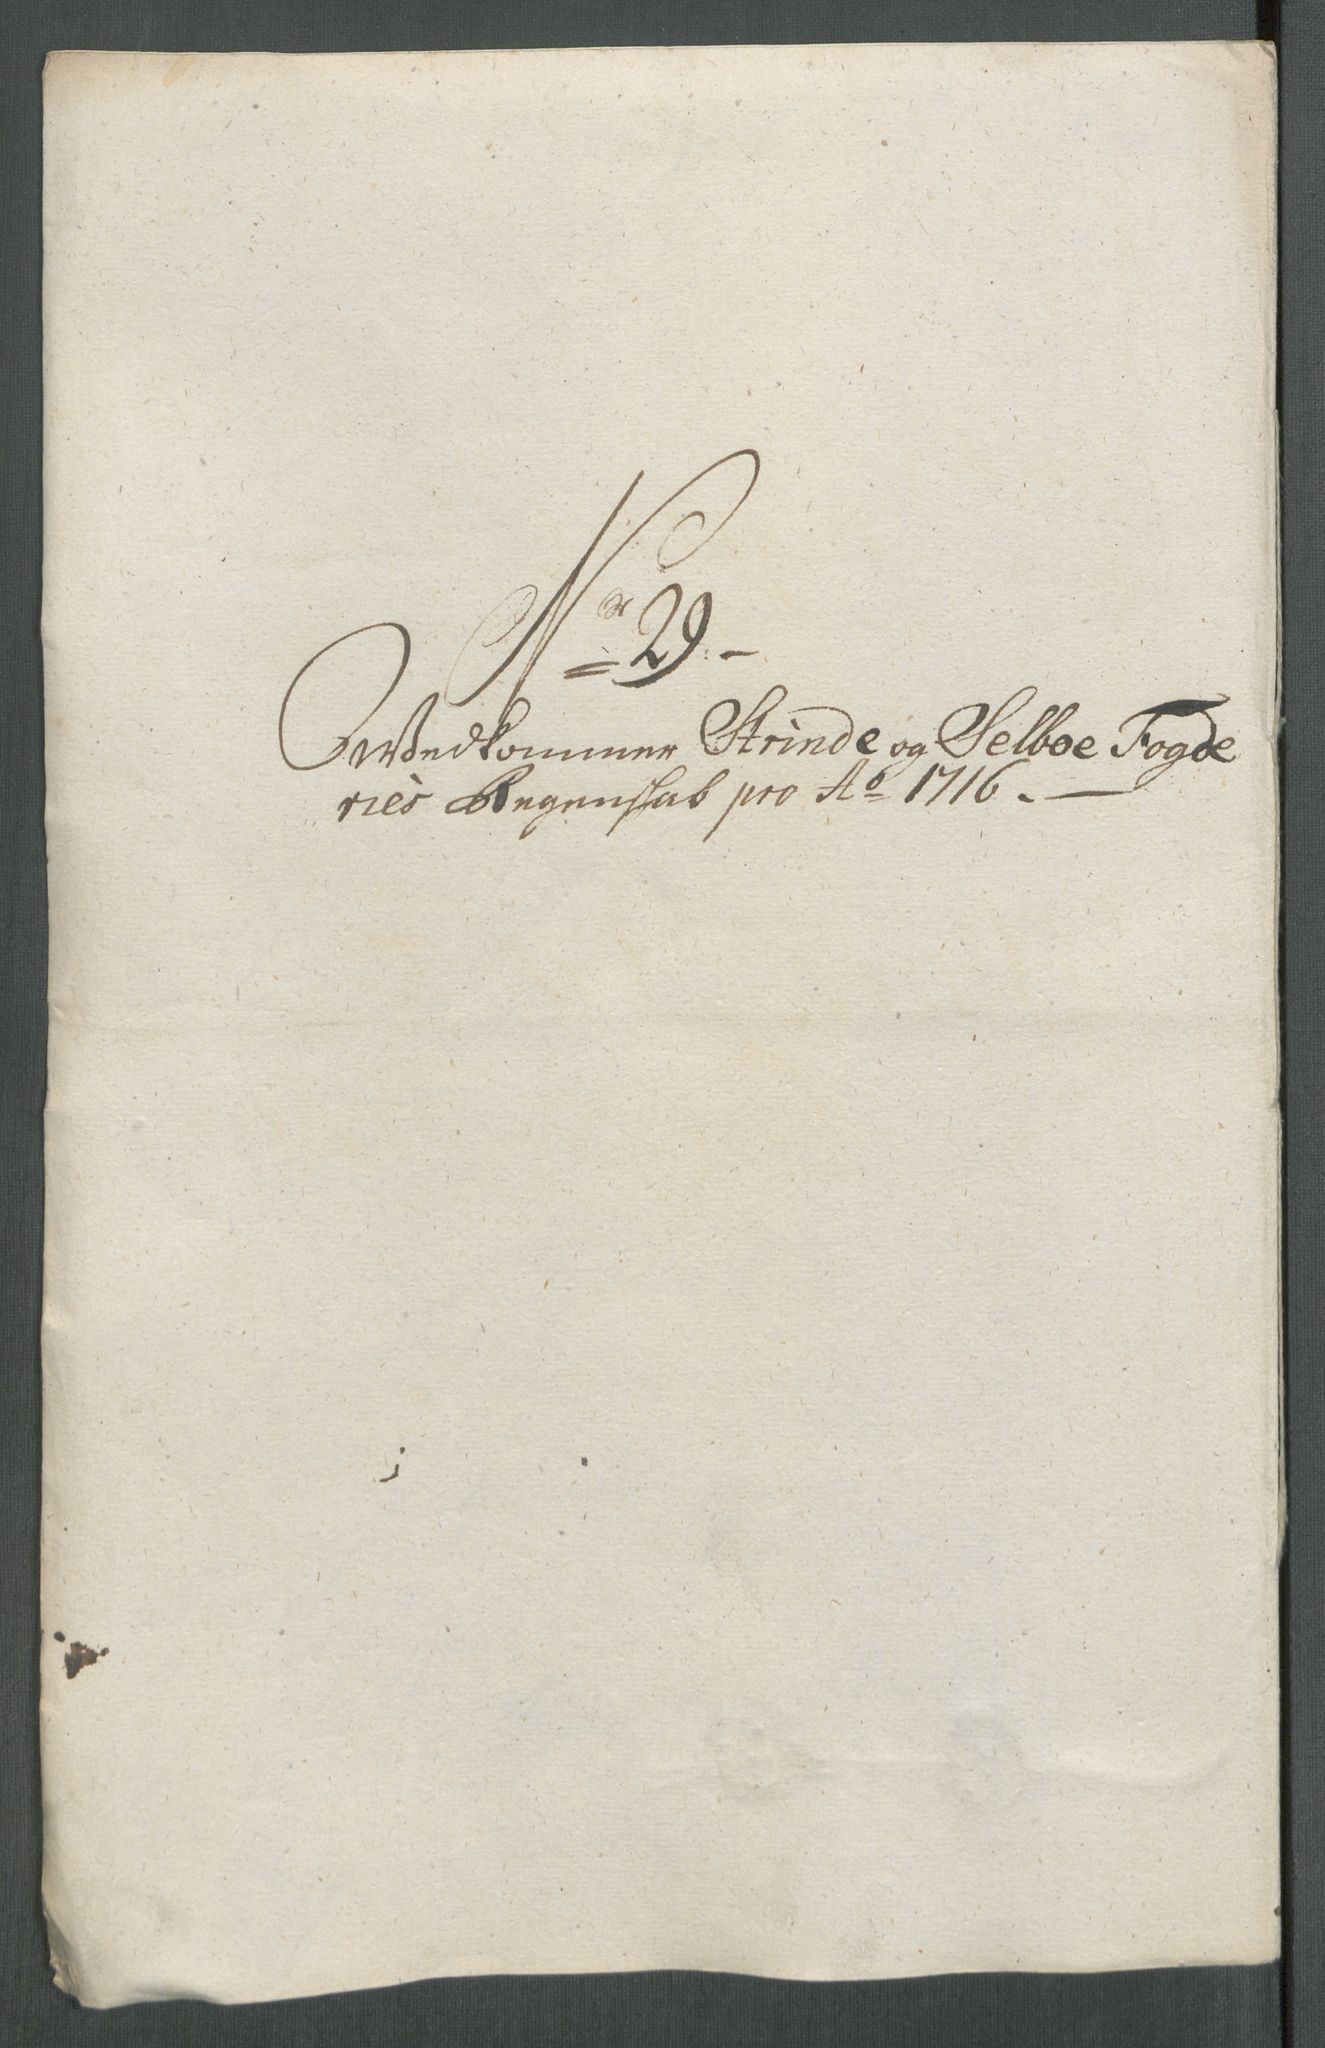 No 29.
Vedkommer Strinde og Selboe Fogde
ries Regenskab pro Ao 1716.